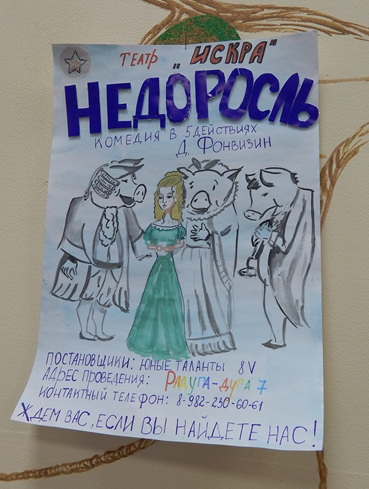 ТЕАТР "ИСКРА"
НЕДОРОСЛЬ
КОМЕДИЯ В 5 ДЕЙСТВИЯХ
Д. ФОНВИЗИН
ПОСТАНОВЩИКИ: ЮНЫЕ ТАЛАНТЫ 8V
АДРЕС ПРОВЕДЕНИЯ: РАДУГА-ДУГА 7
КОНТАКТНЫЙ ТЕЛЕФОН: 8-982-230-60-61
ЖДЕМ ВАС, ЕСЛИ ВЫ НАЙДЕТЕ НАС!